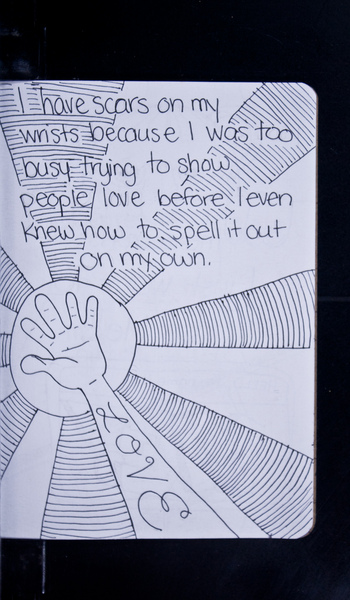 I have scars on my
wrists because I was too
busy trying to show
people love before I even
knew how to spell it out
on my own.
LOVE